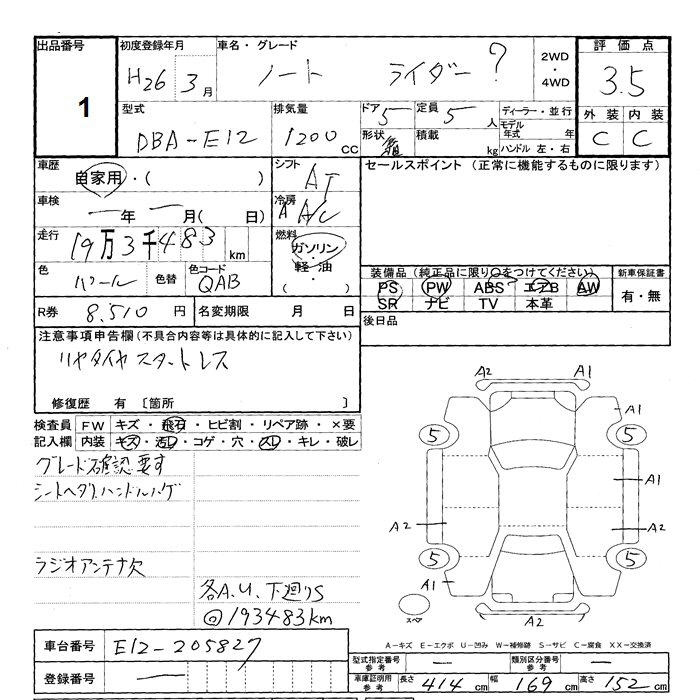 出品番号 初度登録年月 車名・グレード 2WD ・ 4WD 評価点
1 H26 3月 ノート ライダー ? 3.5
型式 排気量 ドア 定員 ディーラー・並行 外装 内装
DBA-E12 1200 CC 5 5人 モデル年式 年 C C
形状 積載 kg ハンドル 左・右
車歴 自家用・( ) シフト AT セールスポイント (正常に機能するものに限ります)
車検 ー年 ー月( 日) 冷房 A A/C
走行 19万3千483 km 燃料 ガソリン・軽油・( )
色 パール 色替 色コード QAB
装備品 (純正品に限り○をつけてください) 新車保証書
PS PW ABS エアB AW 有・無
SR ナビ TV 本革
R券 8,510円 名変期限 月 日
後日品
注意事項申告欄 (不具合内容等は具体的に記入して下さい)
リヤタイヤスタートレス
修復歴 有 [箇所 ]
検査員 FW キズ・飛石・ヒビ割・リペア跡・×要
記入欄 内装 キズ・汚レ・コゲ・穴・スレ・キレ・破レ
グレード確認要す
シートヘタリ、ハンドルハゲ
ラジオアンテナ欠
各A.U.下廻りS
@193483km
A2 A1
A1
5 5
A1
A2 A2
5 5
A1
スペア A2
A-キズ E-エクボ U-凹み W-補修跡 S-サビ C-腐食 XX-交換済
車台番号 E12-205827
登録番号 ー
型式指定番号 参考 ー 類別区分番号 参考 ー
車庫証明用 参考 長さ 414 cm 幅 169 cm 高さ 152 cm